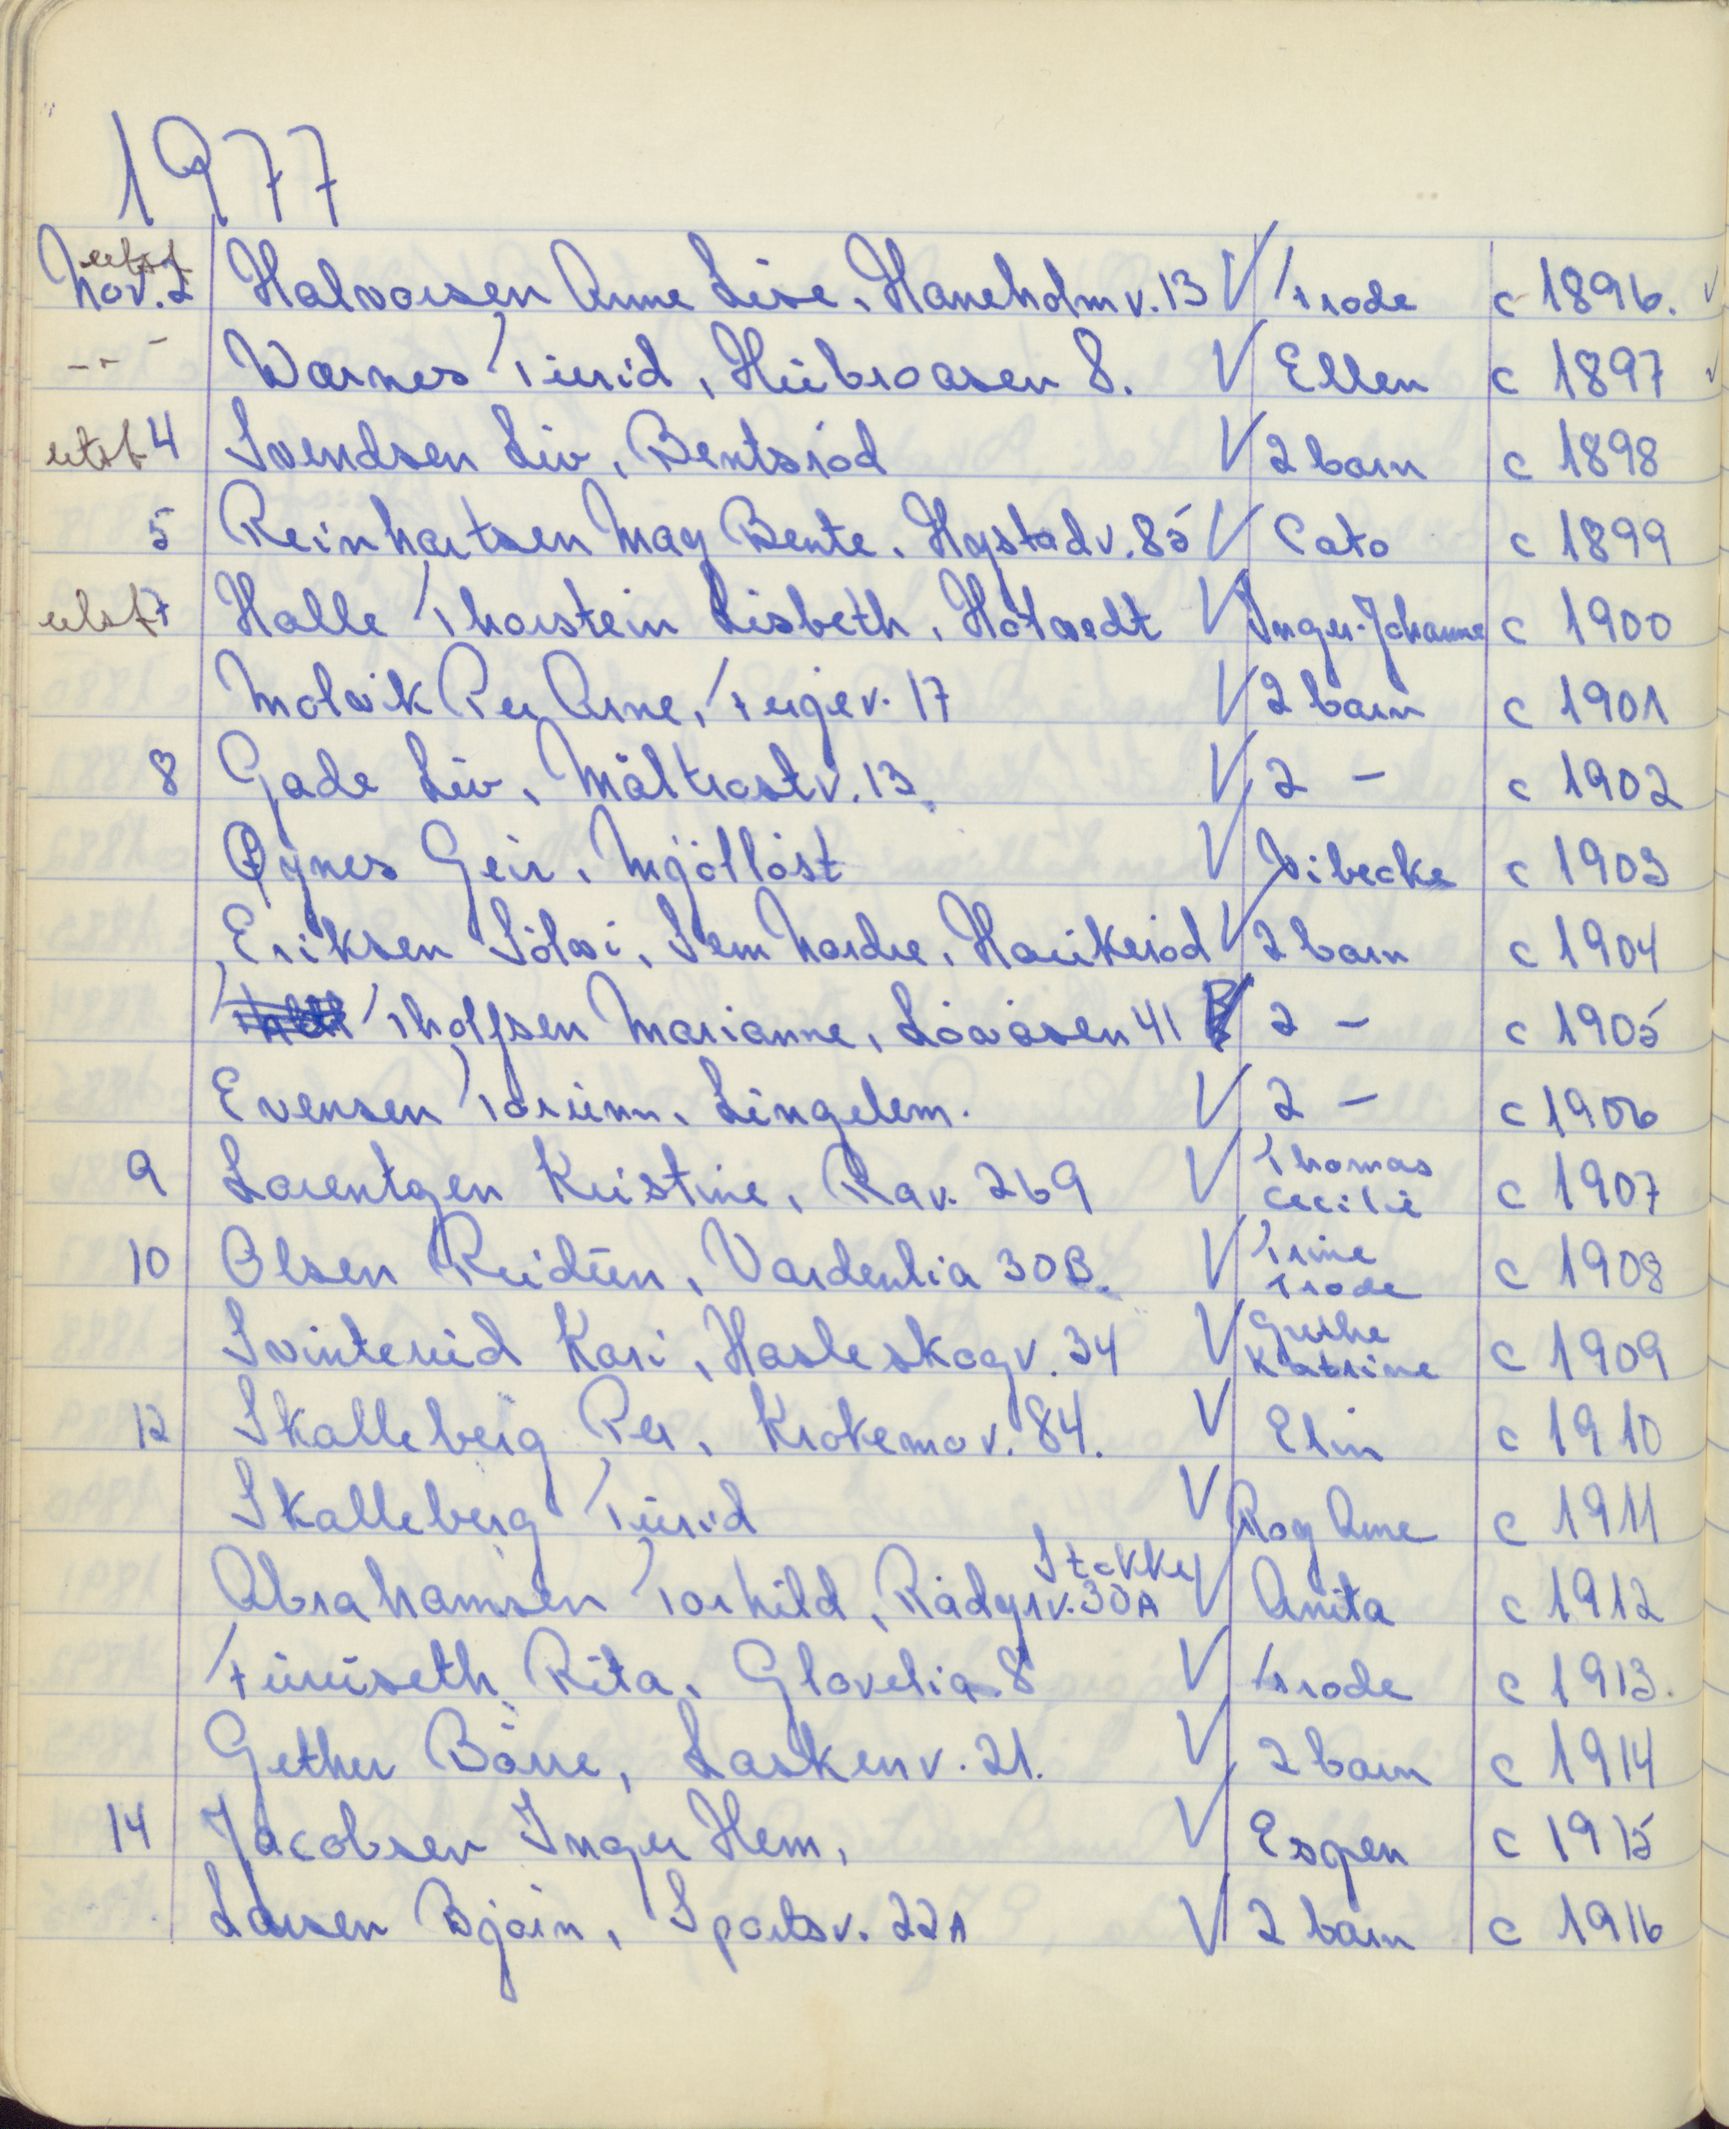 1977
utsf
Nov. 2 Halvorsen Anne Lise, Haneholmv. 13 V Frode c 1896. V
-"- Warnes Turid, Hubroåsen 8. V Ellen c 1897 V
utsf 4 Svendsen Liv, Bentsröd V 2 barn c 1898
5 Reinhartsen May Bente, Hystadv. 85 V Cato c 1899
utsf 7 Halle Thorstein Lisbeth, Hotvedt V Inger-Johanne c 1900
Molvik Per Arne, Fergev. 17 V 2 barn c 1901
8 Gade Liv, Måltrostv. 13. V 2 - c 1902
Øynes Geir, Mjölløst V Vibecke c 1903
Eriksen Sölvi, Sem Nordre, Haukeröd V 2 barn c 1904
Tholfsen Marianne, Lövåsen 41 B V 2 - c 1905
Evensen Torunn, Lingelem. V 2 - c 1906
9 Lorentzen Kristine, Rav. 269 V Thomas Cecilie c 1907
10 Olsen Reidun, Vardenlia 30B. V Trine Frode c 1908
Svinterud Kari, Hasleskogv. 34 V Grethe Katrine c 1909
12 Skalleberg Per, Krokemov. 84. V Elin c 1910
Skalleberg Turid V Roy Arne c 1911
Stokke
Abrahamsen Torhild, Rådyrv. 30A V Anita c 1912
Furuseth Rita, Glovelia 8 V Frode c 1913.
Gether Börre, Laskenv. 21. V 2 barn c 1914
14 Jacobsen Inger Hem, V Espen c 1915
Larsen Bjørn, Sportsv. 22A V 2 barn c 1916